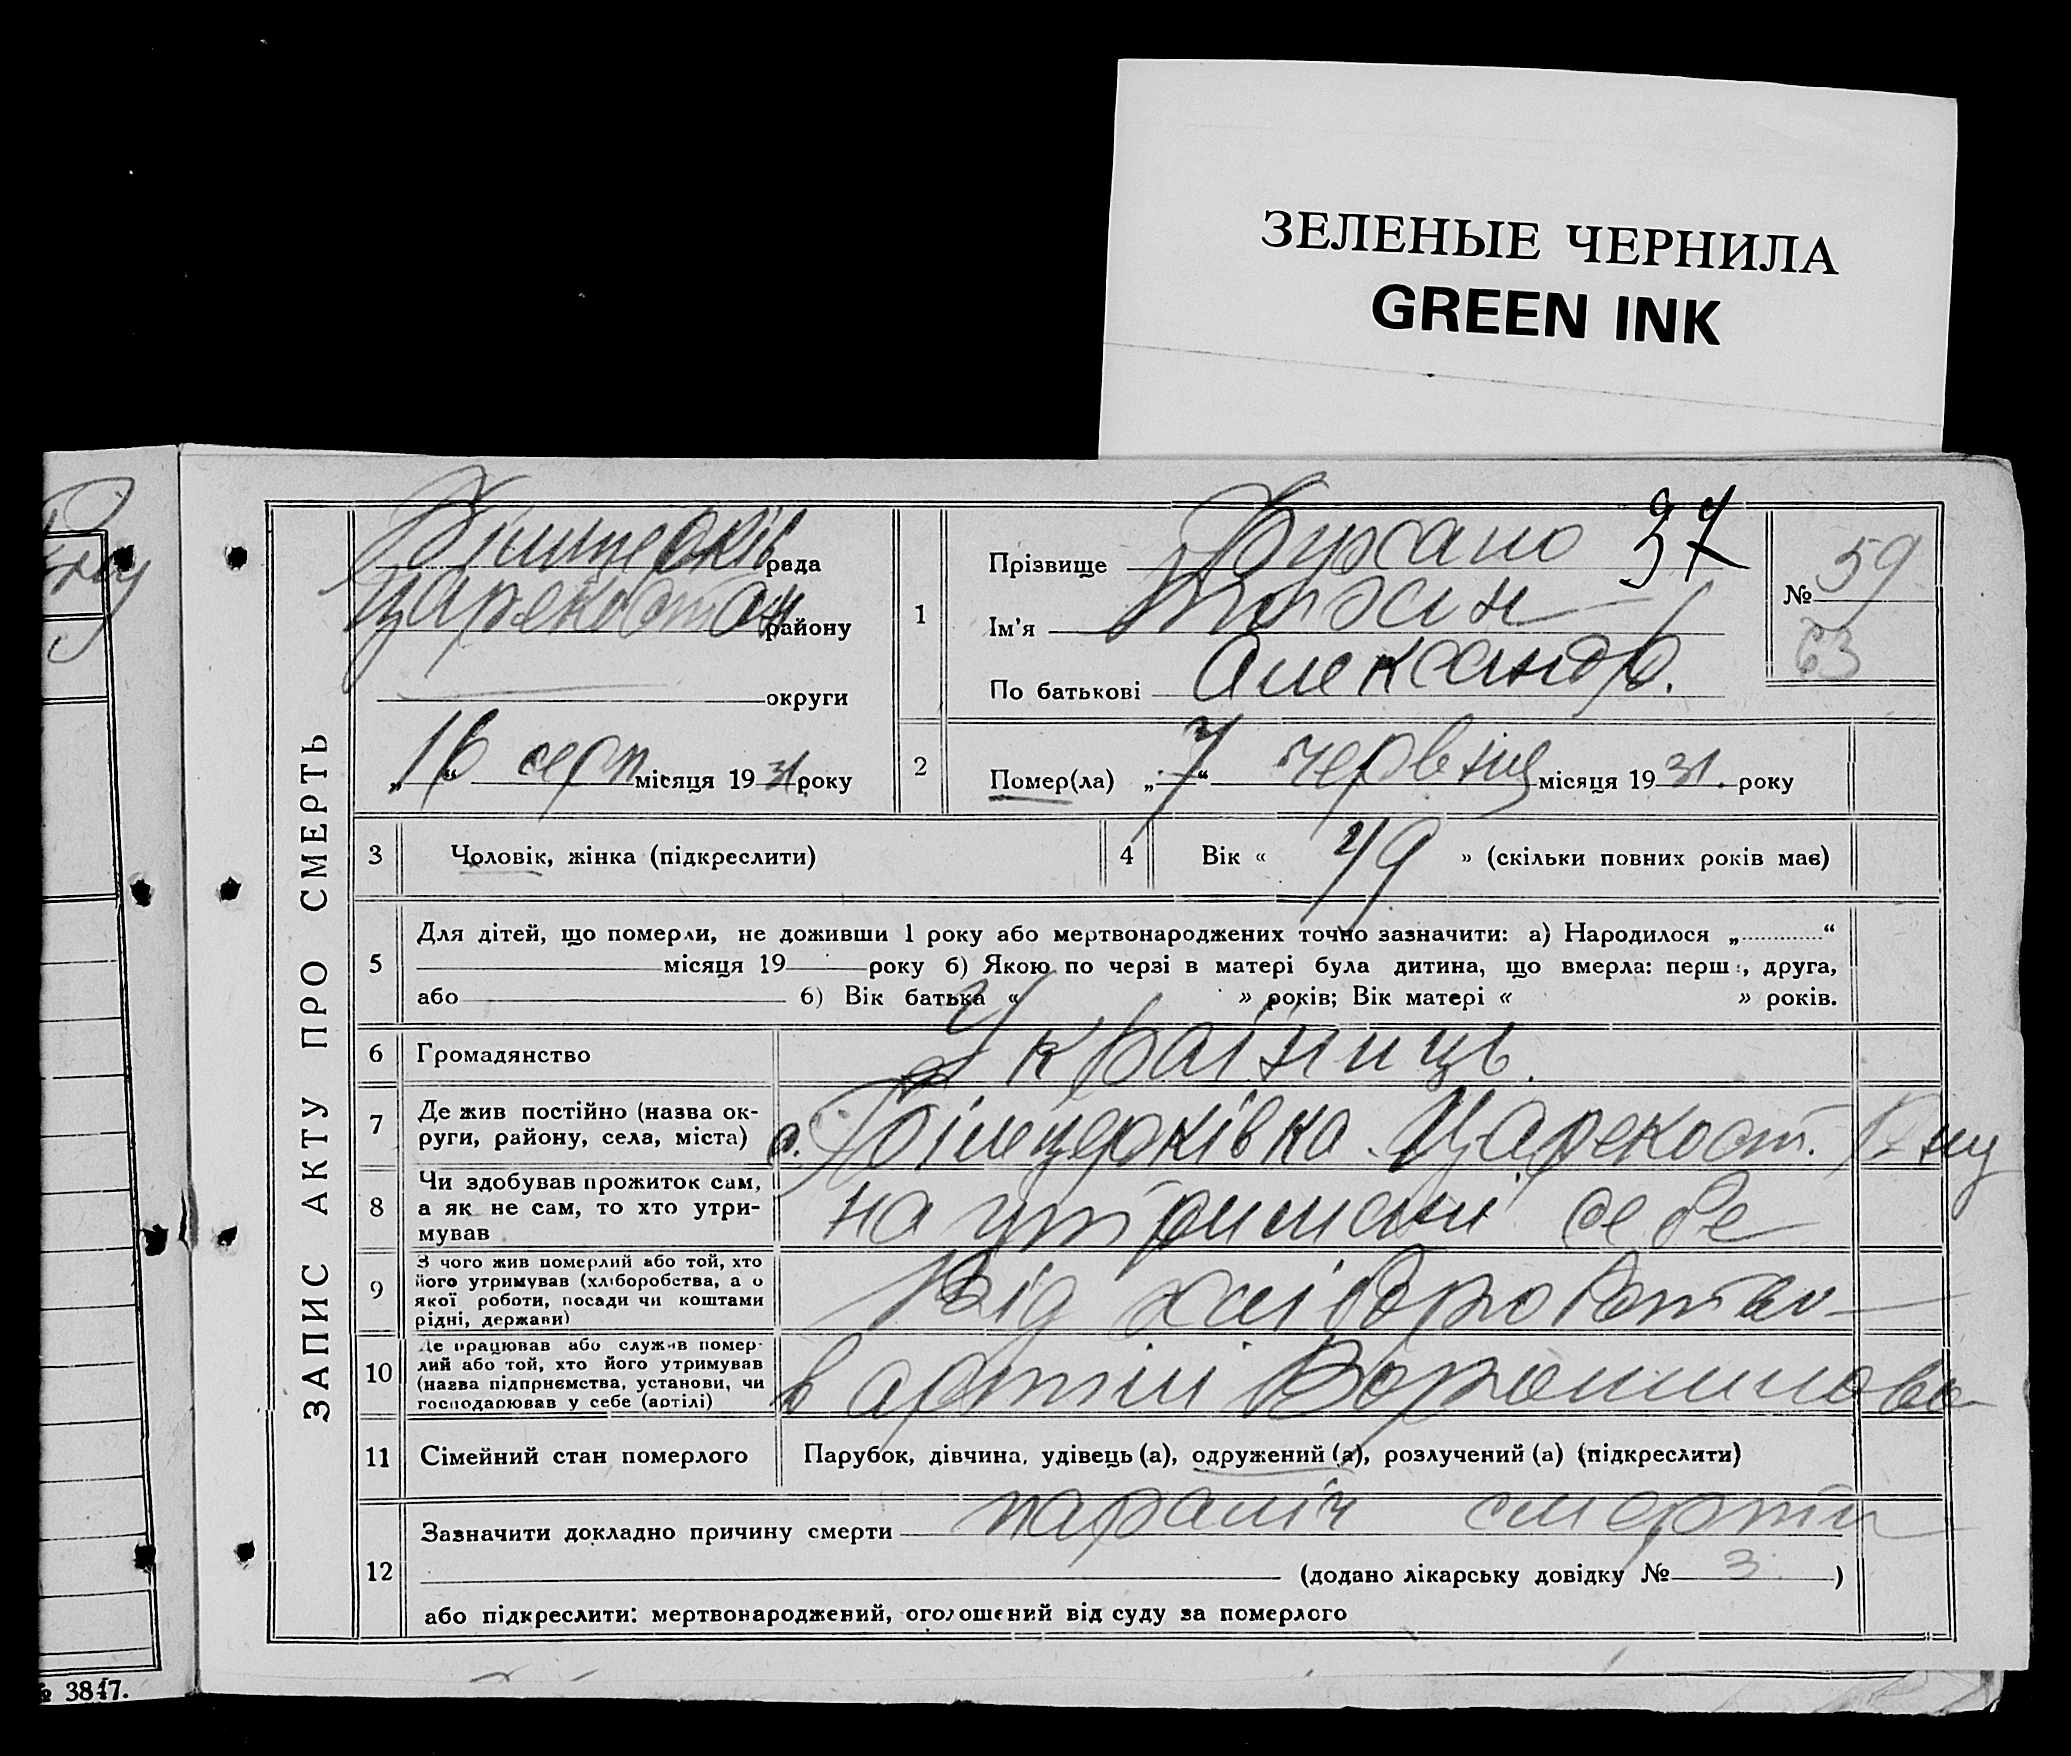 ЗЕЛЕНЫЕ ЧЕРНИЛА
GREEN INK
ЗАПИС АКТУ ПРО СМЕРТЬ
рада
Царекостян району
округи
„16“ серп місяця 1931 року
1
Прізвище 37
Ім'я
По батькові Александр.
№ 59
63
2
Помер(ла) „7“ червня місяця 1931. року
3
Чоловік, жінка (підкреслити)
4
Вік « 49 » (скільки повних років має)
5
Для дітей, що померли, не доживши 1 року або мертвонароджених точно зазначити: а) Народилося „ “
місяця 19 року б) Якою по черзі в матері була дитина, що вмерла: перша, друга,
або б) Вік батька « » років; Вік матері « » років.
6
Громадянство Україниць.
7
Де жив постійно (назва ок-
руги, району, села, міста) с. Білецерківка Царекост. Р-ну
8
Чи здобував прожиток сам,
а як не сам, то хто утри-
мував на утриманні себе
9
З чого жив померлий або той, хто
його утримував (хліборобства, а о
якої роботи, посади чи коштами
рідні, держави) Від хліборобства
10
Де працював або служив помер-
лий або той, хто його утримував
(назва підприємства, установи, чи
господарював у себе (артілі) в артілі Ворошилова
11
Сімейний стан померлого
Парубок, дівчина, удівець (а), одружений (а), розлучений (а) (підкреслити)
12
Зазначити докладно причину смерти параліч смерти
(додано лікарську довідку № 3 )
або підкреслити: мертвонароджений, оголошений від суду за померлого
№ 3847.